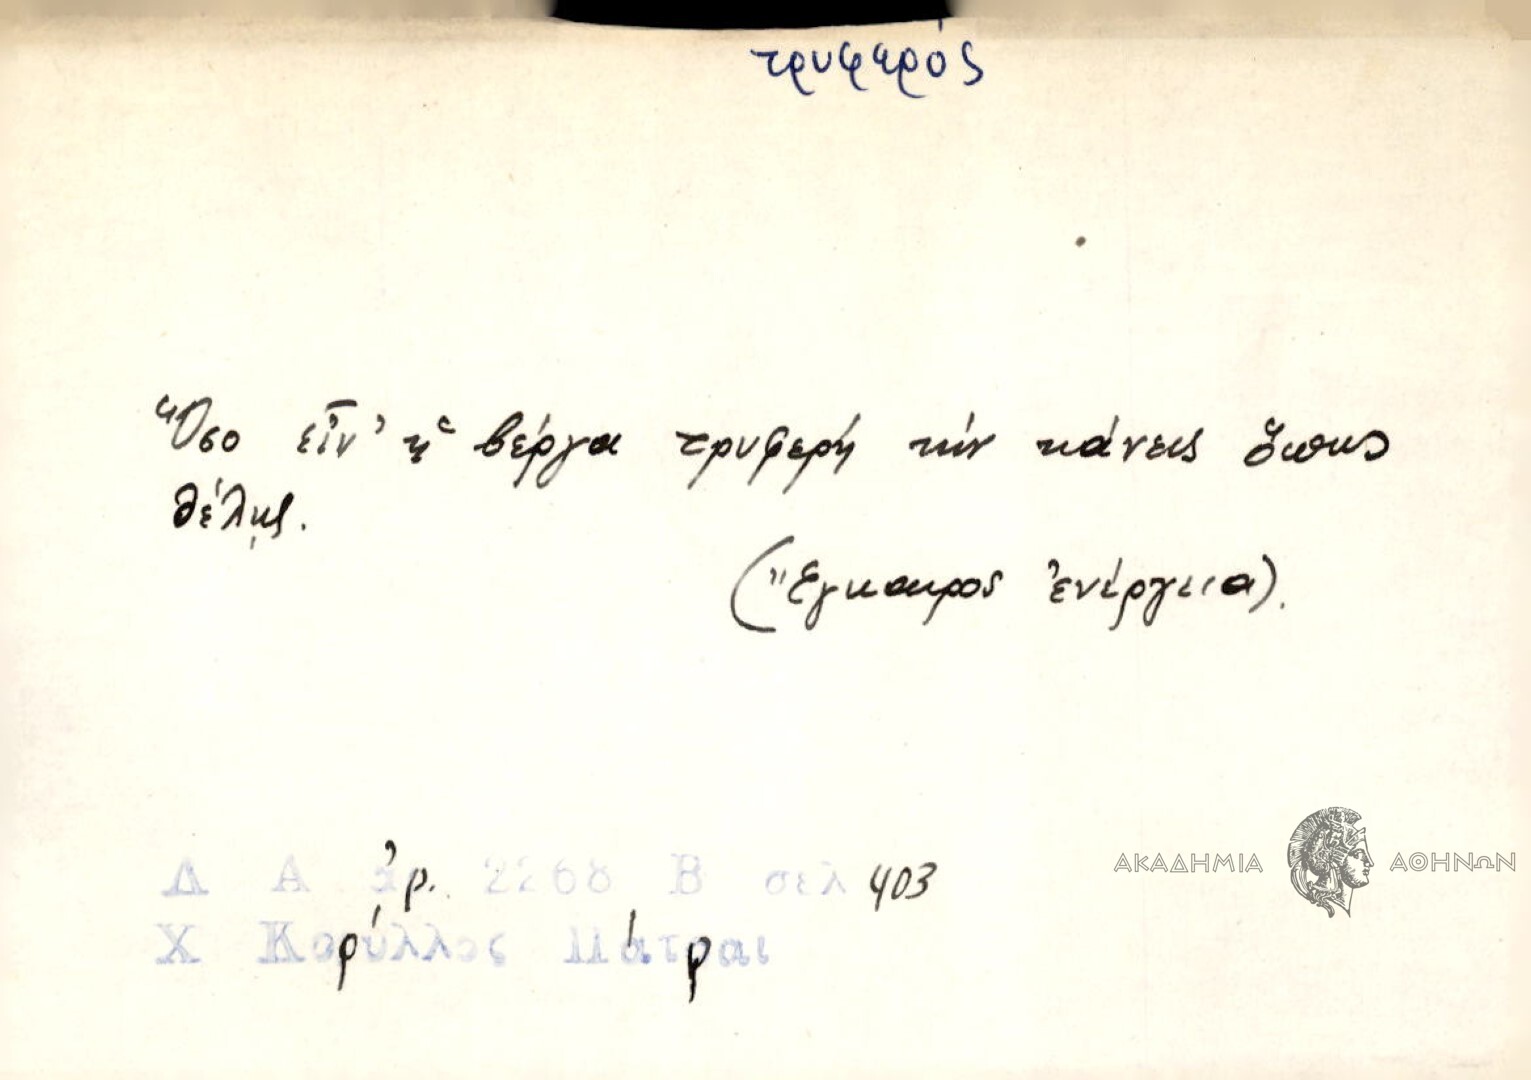 τρυφερός
Ὅσο εἶν' ἡ βέργα τρυφερή τήν κάνεις ὅπως
θέλῃς.
(Ἔγκαιρος ἐνέργεια).
Δ Α ἀρ. 2268 Β σελ 403
Χ Κορύλλος Πάτραι
ΑΚΑΔΗΜΙΑ ΑΘΗΝΩΝ